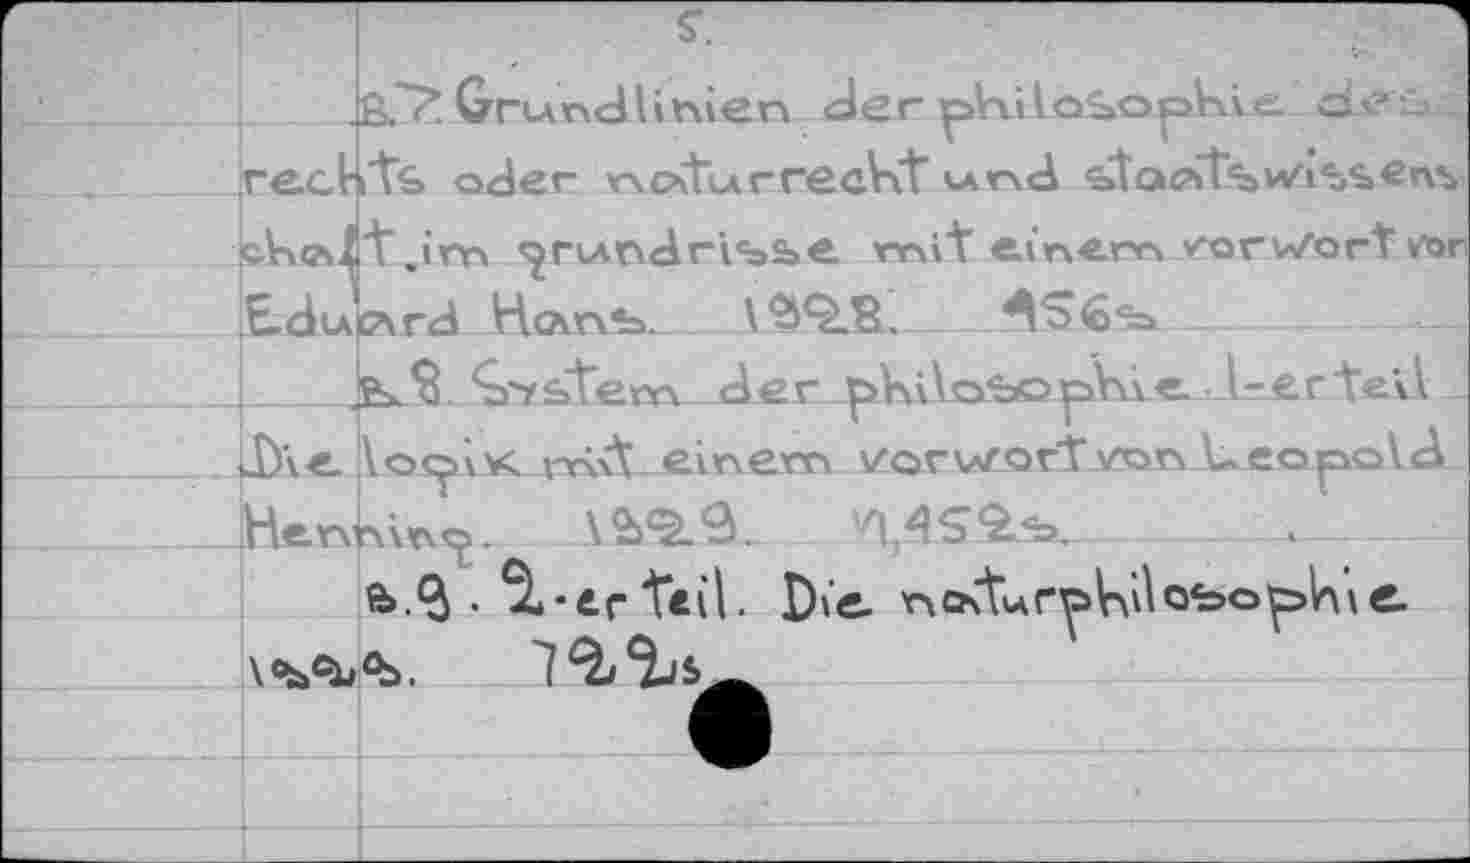 S.
B.7. Grundlinien der philosophie des
rechts oder naturrecht und staatswissens
chaft.im grundrisse mit einem vorwort vor
Eduard Hans. 1928. 456s
B.8. System der philosophie. 1-erteil
Die logik mit einem vorwort von Leopold
Henning. 1929. 452s.
B.9. 2.-er teil. Die naturphilosophie
1929. 722s